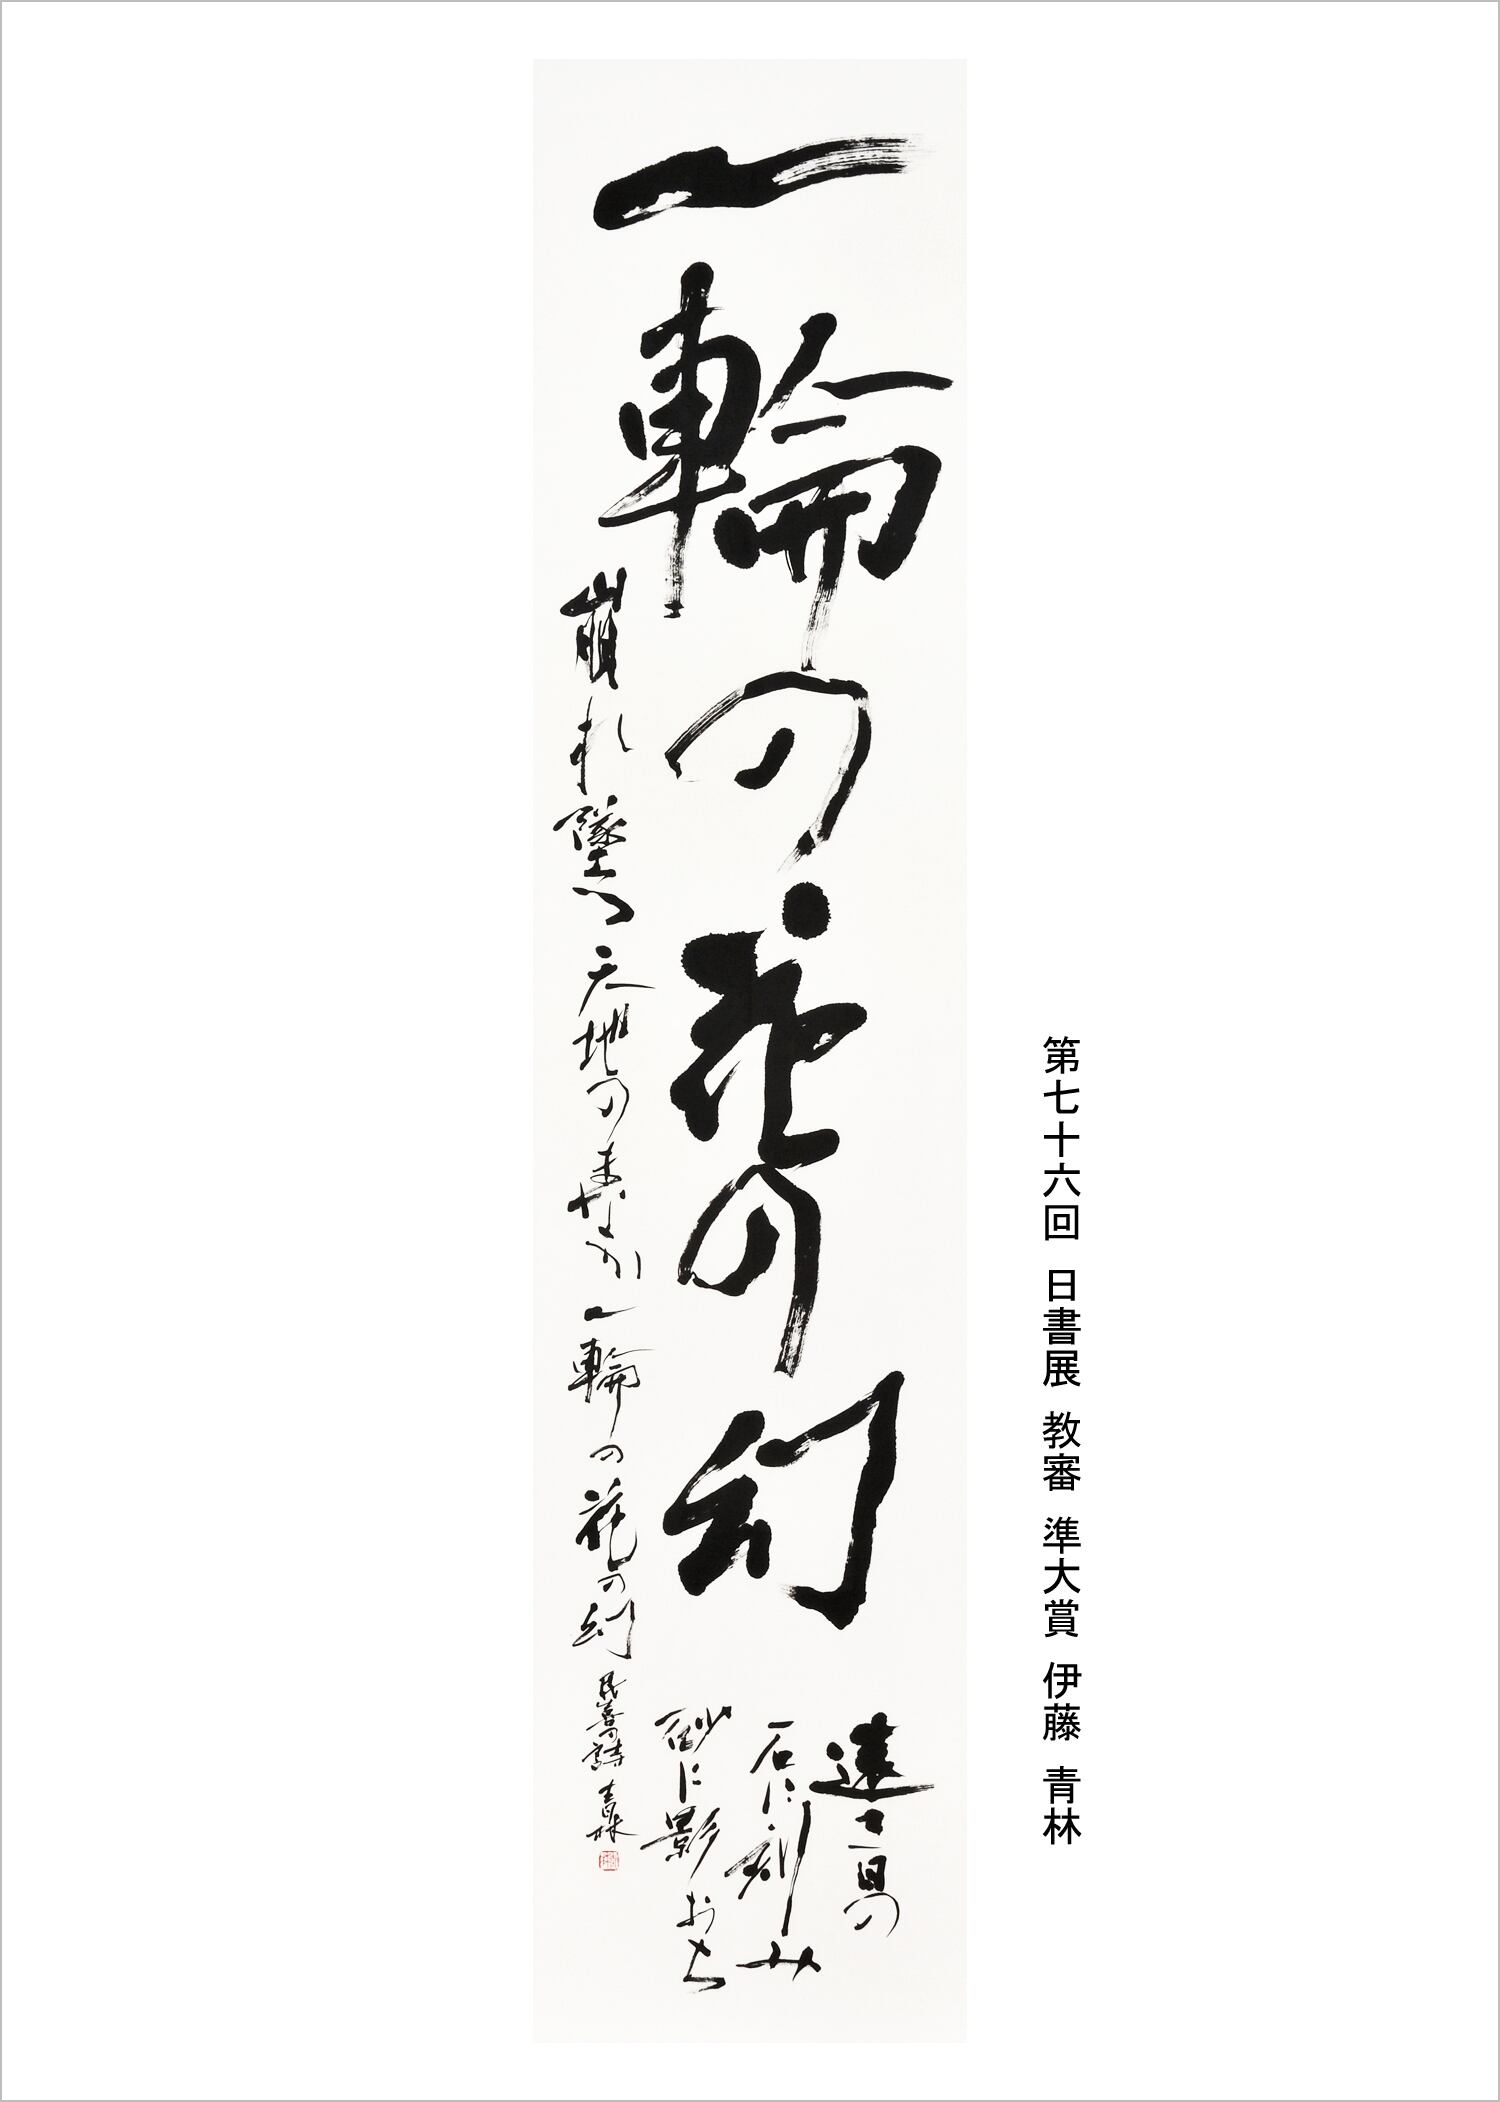 第七十六回 日書展 教審 準大賞 伊藤 青林
一輪の花の幻
遠き日の
石に刻み
砂に影おち
崩れ墜つ天地のまなか一輪の花の幻 民喜詩 青林